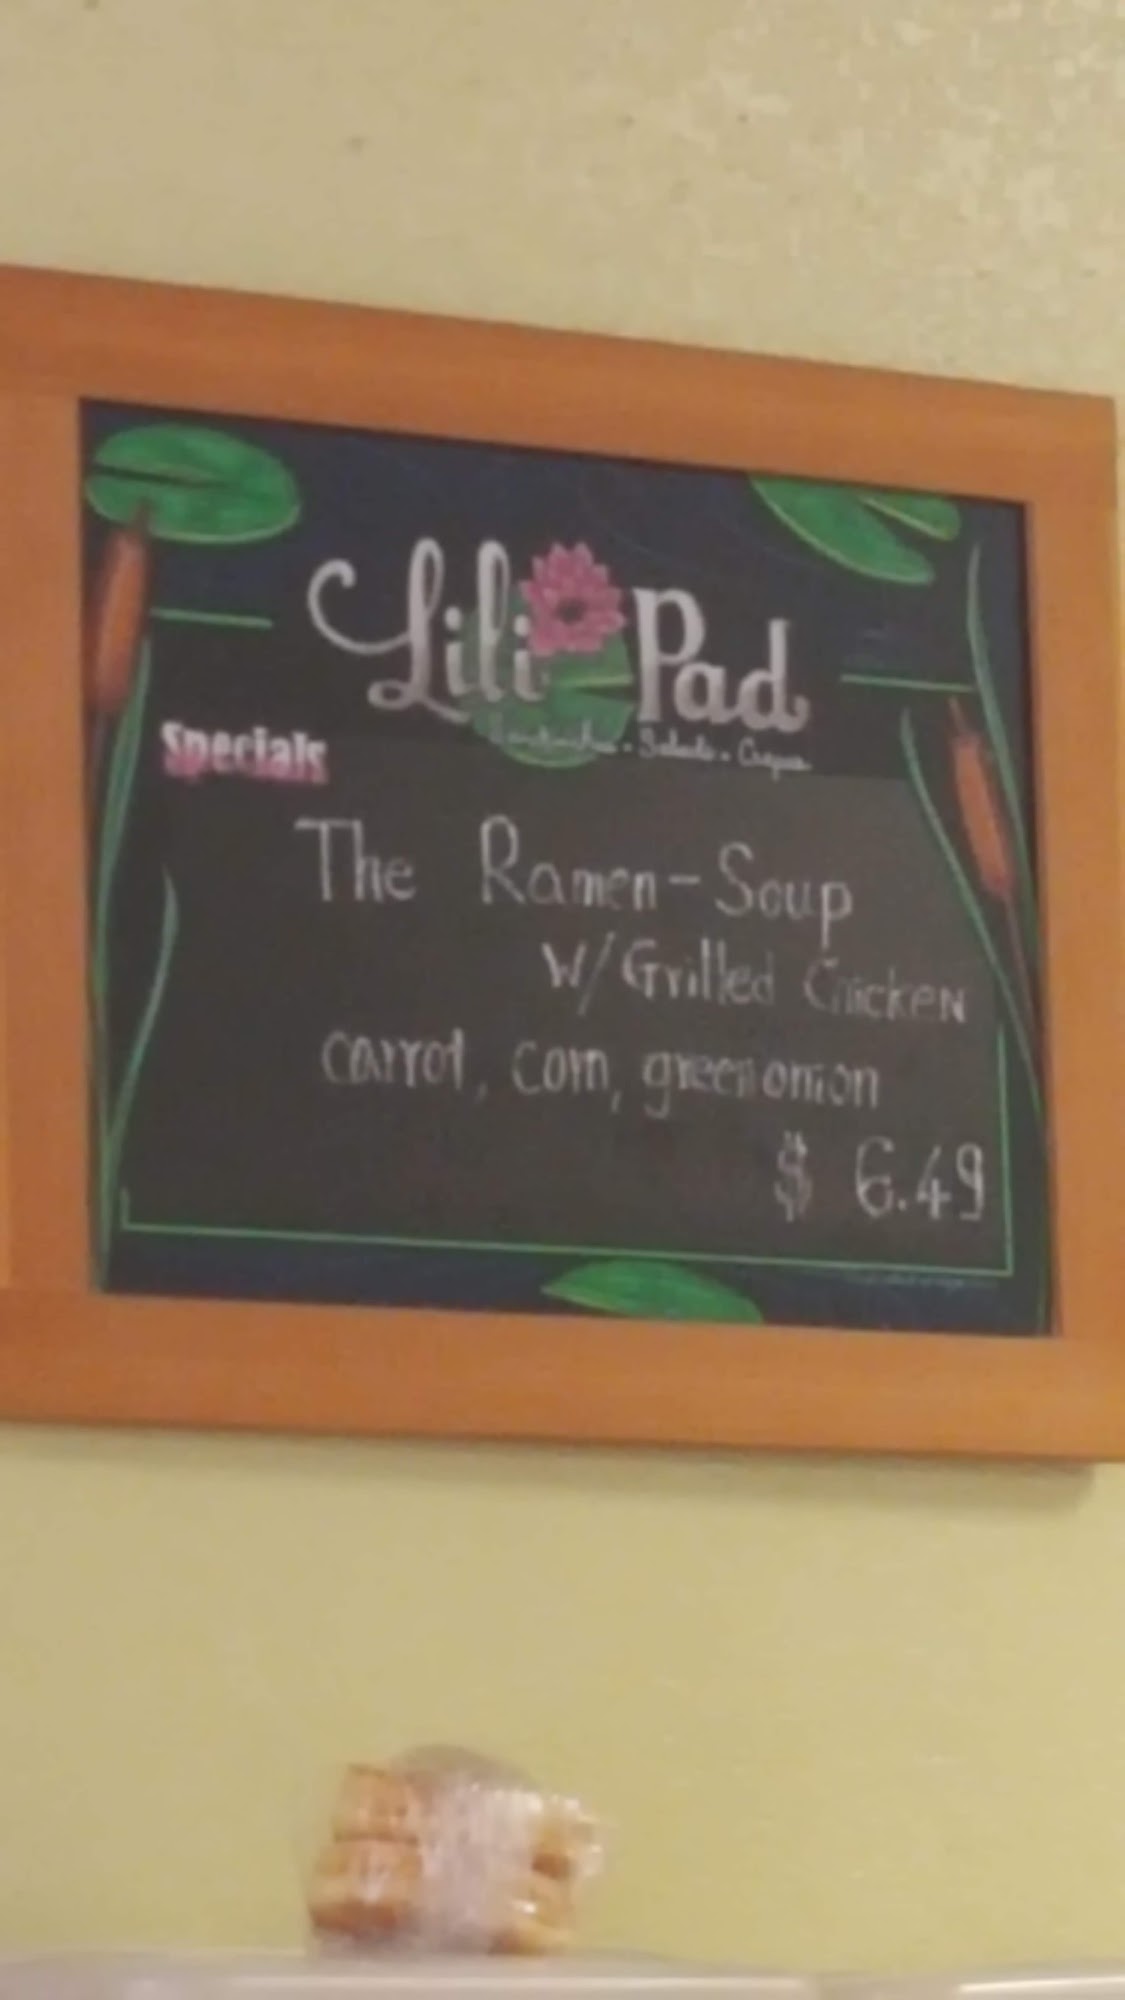 Lili Pad
Sandwiches - Salads - Crepes
Specials
The Ramen-Soup
W/Grilled Chicken
carrot, corn, green onion
$ 6.49